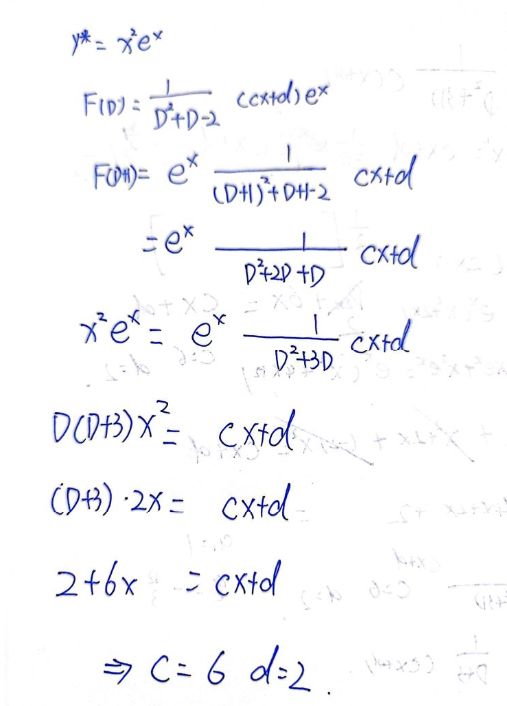 y* = x²eˣ
F(D) = 1/(D²+D-2) (cx+d)eˣ
F(D+1) = eˣ 1/((D+1)²+D+1-2) cx+d
= eˣ 1/(D²+2D+D) cx+d
x²eˣ = eˣ 1/(D²+3D) cx+d
D(D+3)x² = cx+d
(D+3)·2x = cx+d
2+6x = cx+d
⇒ C=6 d=2.